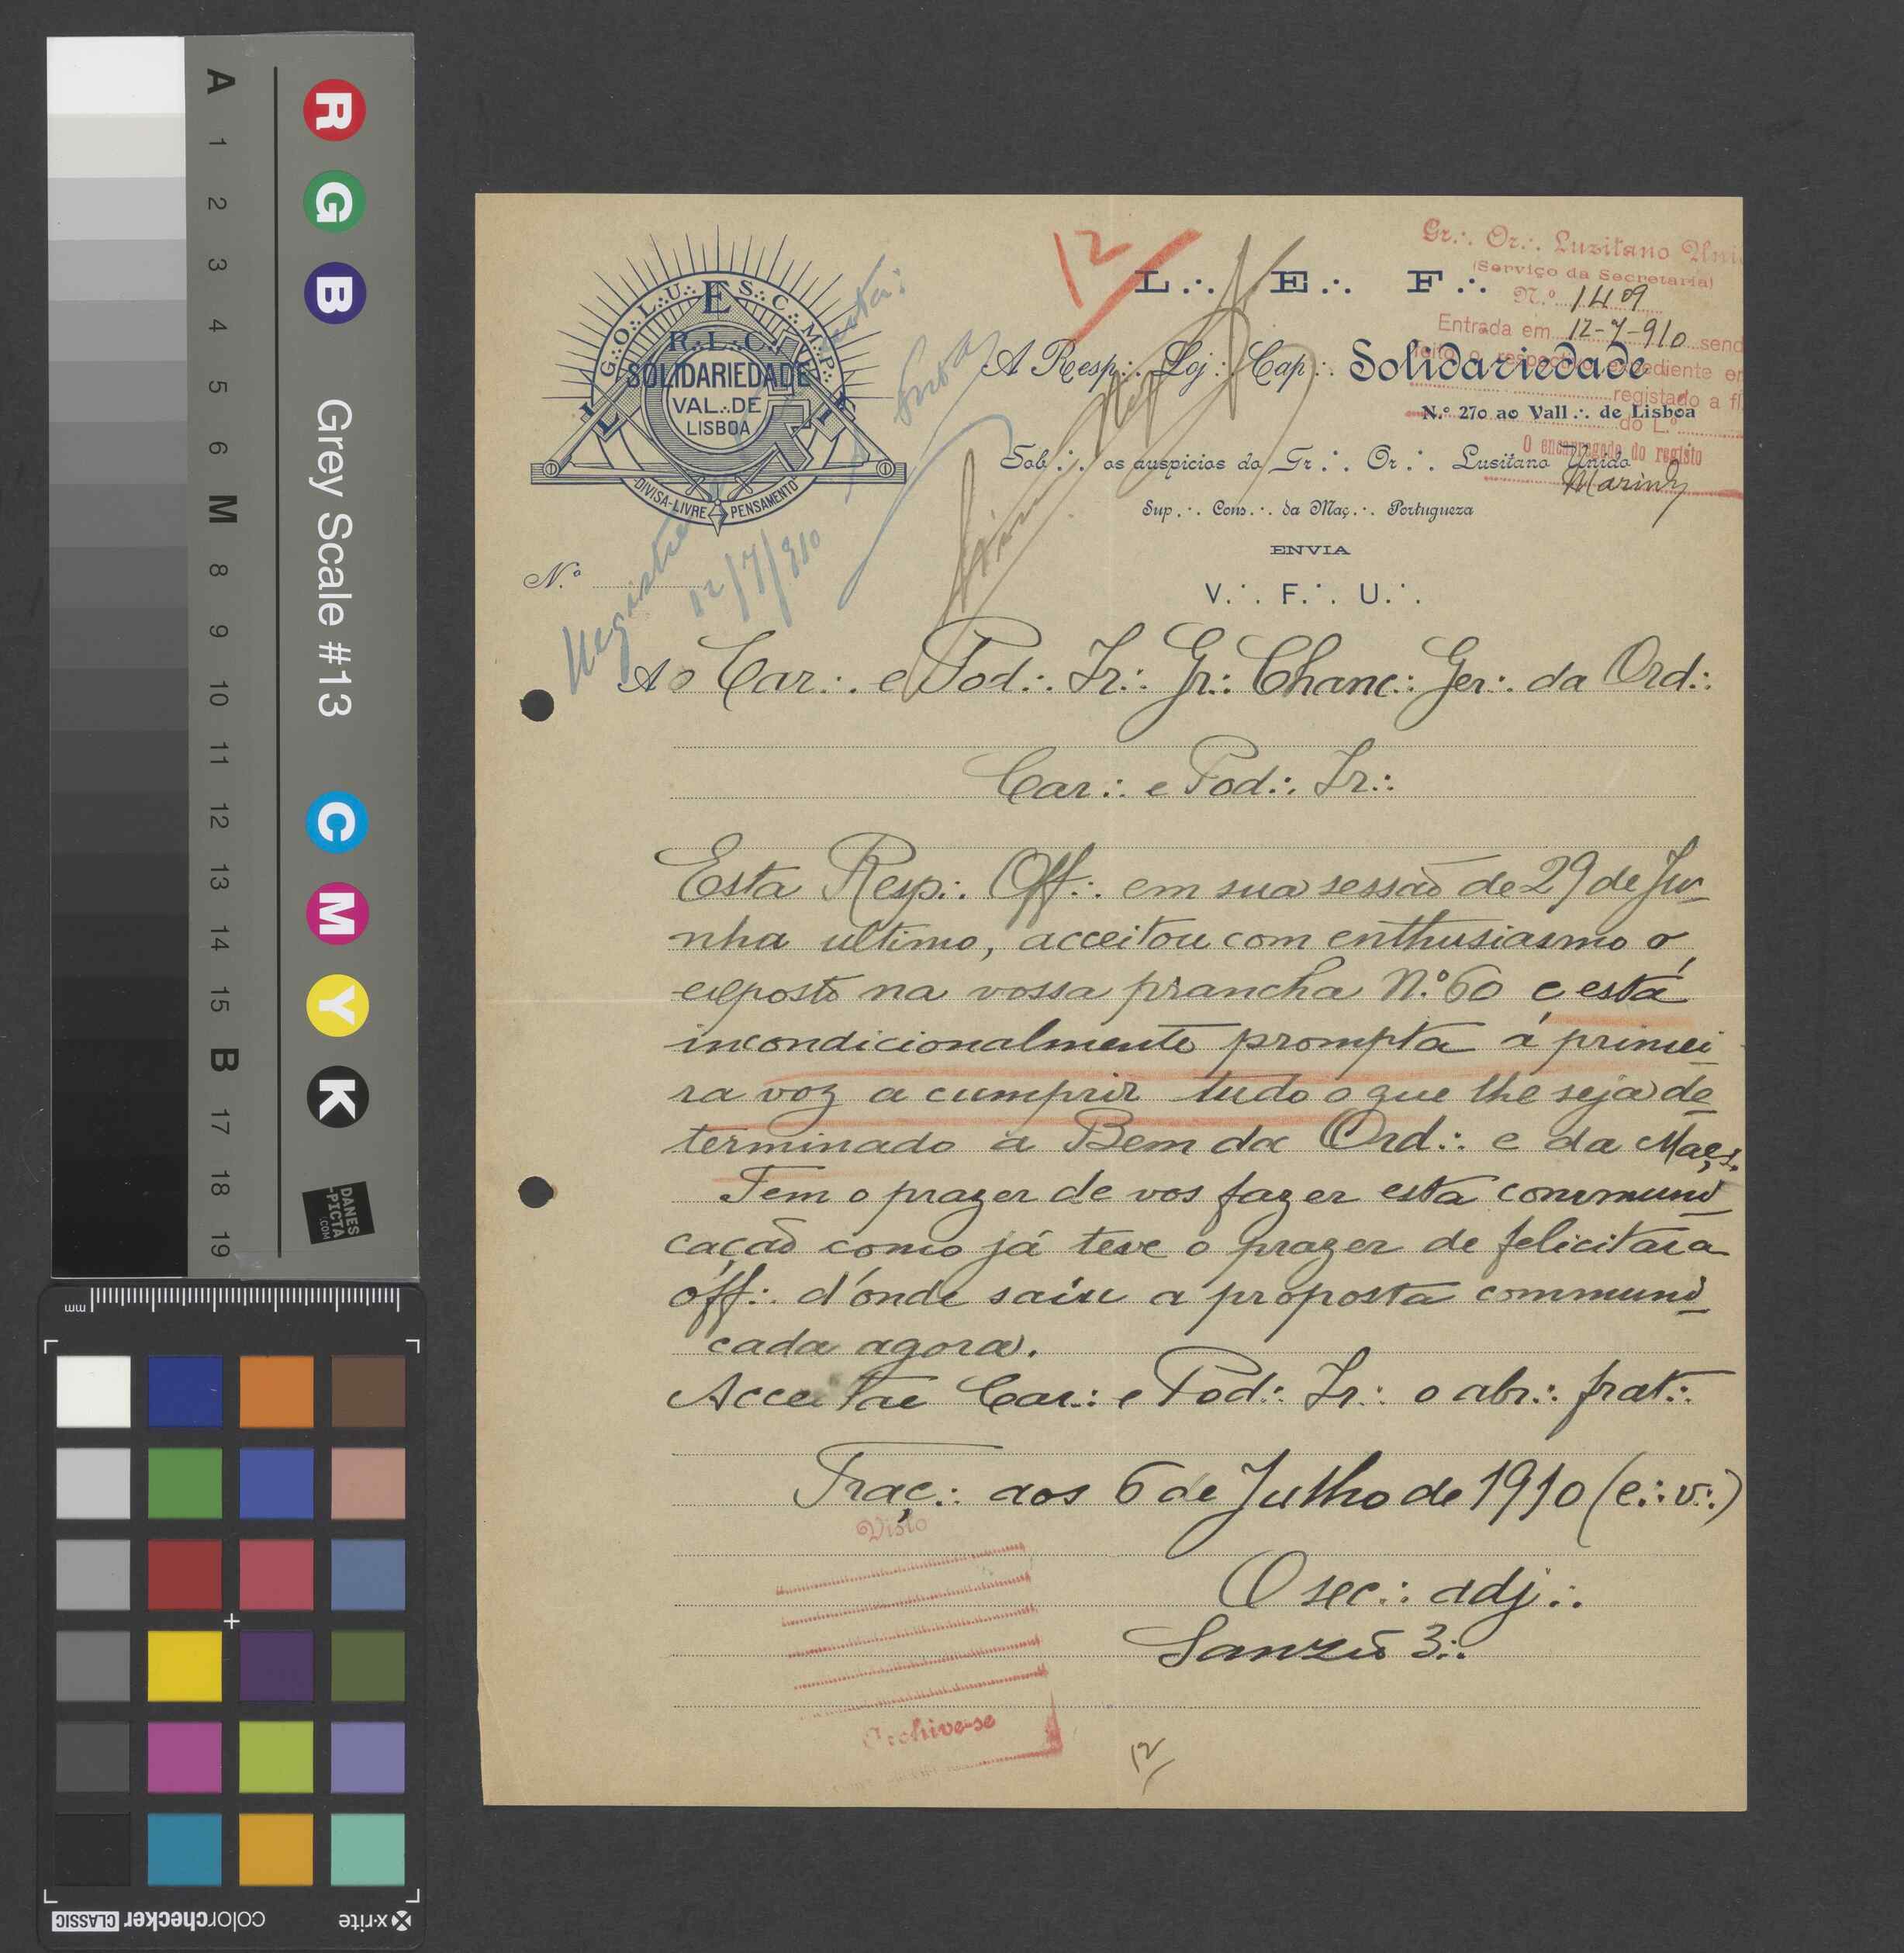 A 1 2 3 4 5 6 M 8 9 10 11 12 13 14 15 B 17 18 19
R G B
Grey Scale #13
C M Y K
DANES
-PICTA
.COM
mm
x-rite colorchecker CLASSIC
12
G∴O∴L∴U∴ E S∴C∴M∴P∴
R∴L∴C∴
SOLIDARIEDADE
VAL∴DE
LISBOA
L L
DIVISA-LIVRE PENSAMENTO
L∴ E∴ F∴
Gr∴ Or∴ Luzitano Uni
(Serviço da Secretaria)
N.º 1409
Entrada em 12-7-910 send
feito o respectivo expediente e
registado a fl
do L.º
O encarregado do registo
A Resp∴ Loj∴ Cap∴ Solidariedade
N.º 270 ao Vall∴ de Lisboa
Sob∴ os auspicios do Gr∴ Or∴ Lusitano Unido
Sup∴ Cons∴ da Maç∴ Portugueza
ENVIA
V∴ F∴ U∴
N.º
12/7/910
Ao Car∴ e Pod∴ Ir∴ Gr∴ Chanc∴ Ger∴ da Ord∴
Car∴ e Pod∴ Ir∴
Esta Resp∴ Off∴ em sua sessão de 29 de Ju-
nha ultimo, acceitou com enthusiasmo o
exposto na vossa prancha N.º 60 e está
incondicionalmente prompta á primei-
ra voz a cumprir tudo o que lhe seja de-
terminado a Bem da Ord∴ e da Maç∴
Tem o prazer de vos fazer esta communi-
cação como já teve o prazer de felicitar a
off∴ d'onde saiu a proposta communi-
cada agora.
Acceitae Car∴ e Pod∴ Ir∴ o abr∴ frat∴
Traç∴ aos 6 de Julho de 1910 (e∴v∴)
Visto
O sec∴ adj∴
Sanzio 3∴
Archive-se
12